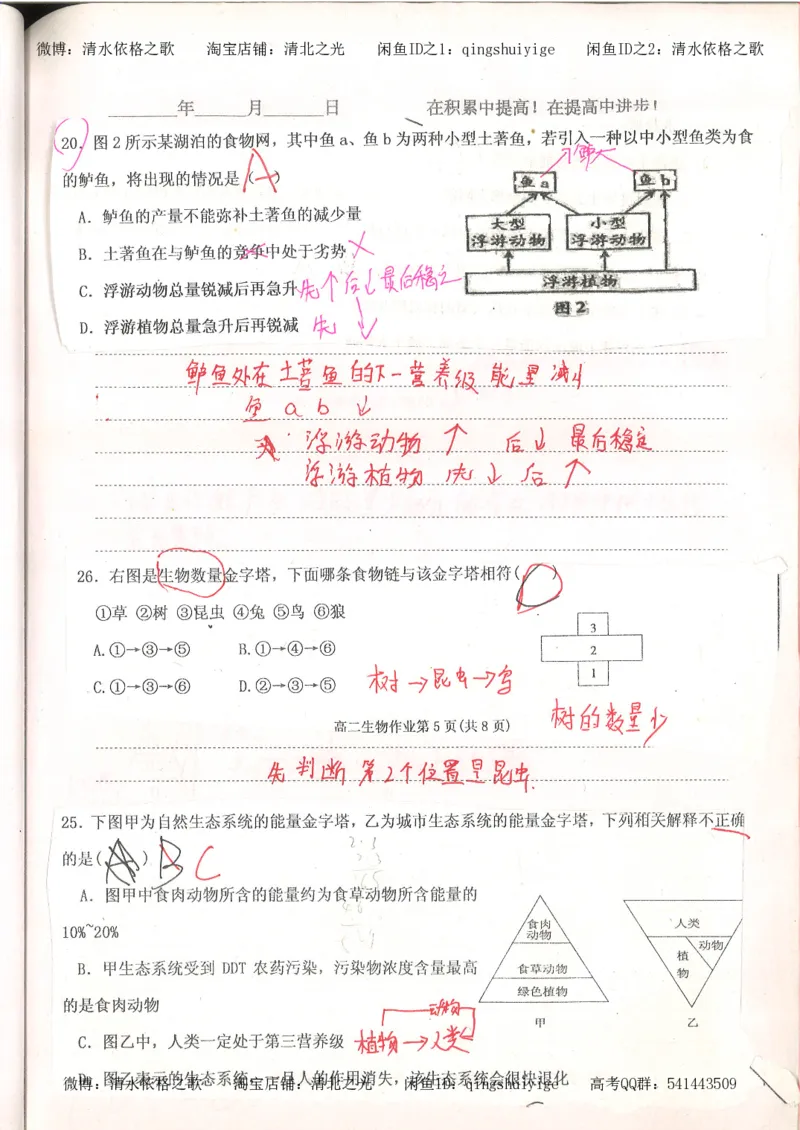 微博：清水依格之歌 淘宝店铺：清北之光 闲鱼ID之1：qingshuiyige 闲鱼ID之2：清水依格之歌
年 月 日 在积累中提高！在提高中进步！
20．图2所示某湖泊的食物网，其中鱼a、鱼b为两种小型土著鱼，若引入一种以中小型鱼类为食
的鲈鱼，将出现的情况是（A）
A．鲈鱼的产量不能弥补土著鱼的减少量
B．土著鱼在与鲈鱼的竞争中处于劣势 ×
C．浮游动物总量锐减后再急升 先↑后↓最后稳定
D．浮游植物总量急升后再锐减 先↓
鱼a 鱼b
大型
浮游动物
小型
浮游动物
浮游植物
图2
鲈鱼处在土著鱼的下一营养级 能量减少
鱼 a b ↓
浮游动物 ↑ 后↓ 最后稳定
浮游植物 先↓ 后↑
26．右图是生物数量金字塔，下面哪条食物链与该金字塔相符( )
①草 ②树 ③昆虫 ④兔 ⑤鸟 ⑥狼
A.①→③→⑤ B.①→④→⑥
C.①→③→⑥ D.②→③→⑤
3
2
1
树→昆虫→鸟
树的数量少
高二生物作业第5页(共8页)
先判断 第2个位置是昆虫.
25．下图甲为自然生态系统的能量金字塔，乙为城市生态系统的能量金字塔，下列相关解释不正确
的是( ) B C
A．图甲中食肉动物所含的能量约为食草动物所含能量的
10%~20%
B．甲生态系统受到 DDT 农药污染，污染物浓度含量最高
的是食肉动物
C．图乙中，人类一定处于第三营养级
动物
植物→人类
D．图乙表示的生态系统，一旦人的作用消失，该生态系统会很快退化
食肉
动物
食草动物
绿色植物
甲
人类
动物
植
物
乙
微博：清水依格之歌 淘宝店铺：清北之光 闲鱼ID：qingshuiyige 高考QQ群：541443509